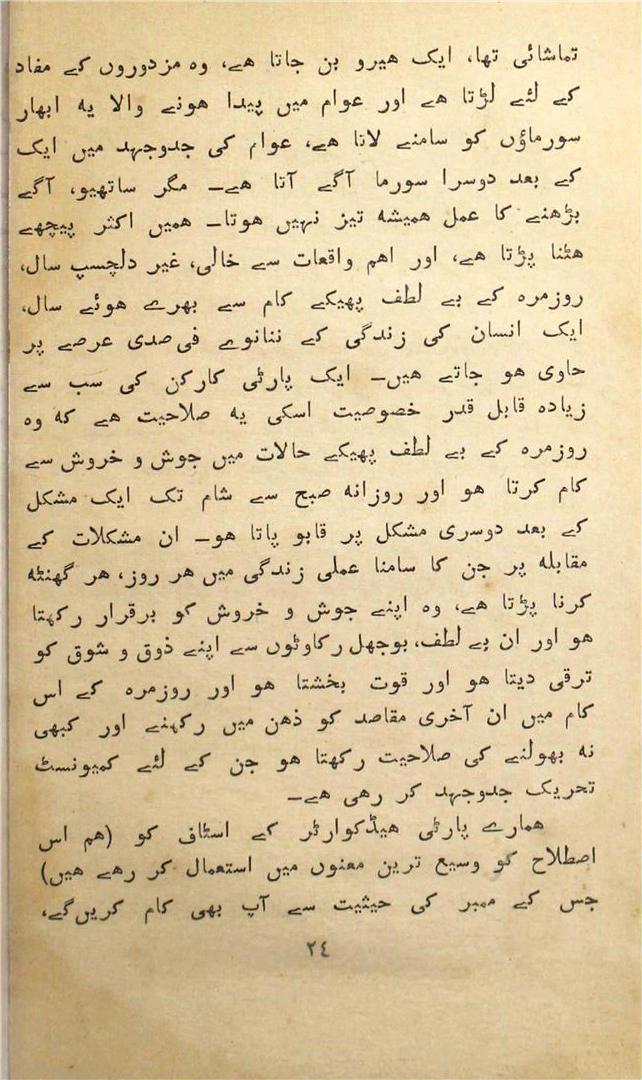 تماشائی تھا، ایک ہیرو بن جاتا ہے، وہ مزدوروں کے مفاد
کے لئے لڑتا ہے اور عوام میں پیدا ہونے والا یہ ابھار
سورماؤں کو سامنے لاتا ہے، عوام کی جدوجہد میں ایک
کے بعد دوسرا سورما آگے آتا ہے۔ مگر ساتھیو، آگے
بڑھنے کا عمل ہمیشہ تیز نہیں ہوتا۔ ہمیں اکثر پیچھے
ہٹنا پڑتا ہے، اور اہم واقعات سے خالی، غیر دلچسپ سال،
روزمرہ کے بے لطف پھیکے کام سے بھرے ہوئے سال،
ایک انسان کی زندگی کے ننانوے فی صدی عرصے پر
حاوی ہو جاتے ہیں۔ ایک پارٹی کارکن کی سب سے
زیادہ قابل قدر خصوصیت اسکی یہ صلاحیت ہے کہ وہ
روزمرہ کے بے لطف پھیکے حالات میں جوش و خروش سے
کام کرتا ہو اور روزانہ صبح سے شام تک ایک مشکل
کے بعد دوسری مشکل پر قابو پاتا ہو۔ ان مشکلات کے
مقابلہ پر جن کا سامنا عملی زندگی میں ہر روز، ہر گھنٹہ
کرنا پڑتا ہے، وہ اپنے جوش و خروش کو برقرار رکھتا
ہو اور ان بے لطف، بوجھل رکاوٹوں سے اپنے ذوق و شوق کو
ترقی دیتا ہو اور قوت بخشتا ہو اور روزمرہ کے اس
کام میں ان آخری مقاصد کو ذہن میں رکھنے اور کبھی
نہ بھولنے کی صلاحیت رکھتا ہو جن کے لئے کمیونسٹ
تحریک جدوجہد کر رہی ہے۔
ہمارے پارٹی ہیڈکوارٹر کے اسٹاف کو (ہم اس
اصطلاح کو وسیع ترین معنوں میں استعمال کر رہے ہیں)
جس کے ممبر کی حیثیت سے آپ بھی کام کریں گے،
٢٤